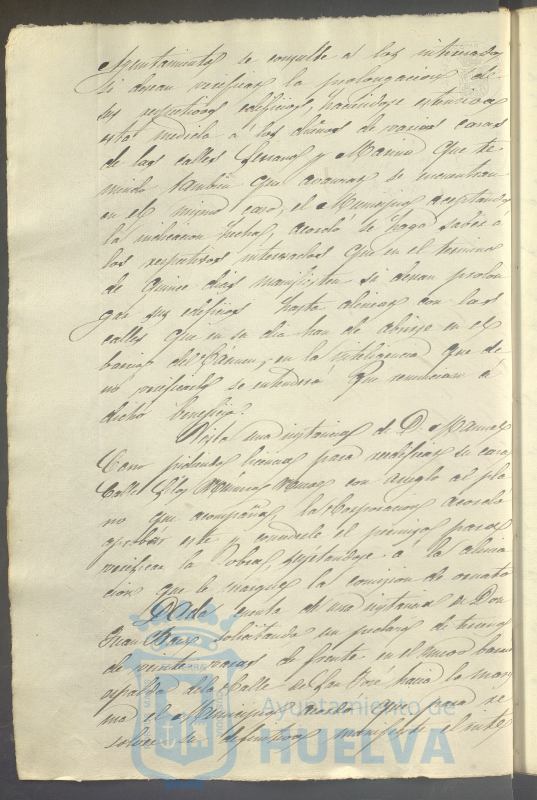 Ayuntamiento se consulte a los interesados
si desean verificar la prolongacion de
sus respectivos edificios, haciendose estensiva
esta medida á los dueños de varias casas
de las calles Serrano y Marina que te
miendo tambien que avanzar se encuentran
en el mismo caso, el Municipio aceptando
la indicacion hecha, acordó se haga saber á
los respectivos interesados que en el termino
de quince dias manifiesten si desean prolon
gar sus edificios hasta alinear con las
calles que en su dia han de abrirse en el
barrio del; en la inteligencia que de
no verificarlo se entenderá que renuncian á
dicho beneficio.
Vista una instancia de D. Manuel
Cano pidiendo licencia para reedificar su casa
Calle con arreglo al pla
no que acompaña, la Corporacion acordó
aprobar este y concederle el permiso para
verificar la obra, sujetandose á la alinea
cion que le marque la comision de ornato
Dada cuenta de una instancia de Don
Juan solicitando un pedazo de terreno
de veinte varas de frente en el nuevo barrio
espalda de la Calle de San José hacia la mar
el Municipio acordó que para re
solver en definitiva manifieste el
Ayuntamiento de
HUELVA